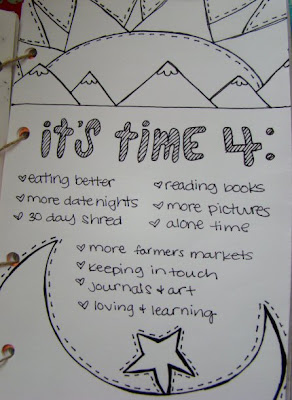 it's time 4:
eating better
more date nights
30 day shred
reading books
more pictures
alone time
more farmers markets
keeping in touch
journals & art
loving & learning